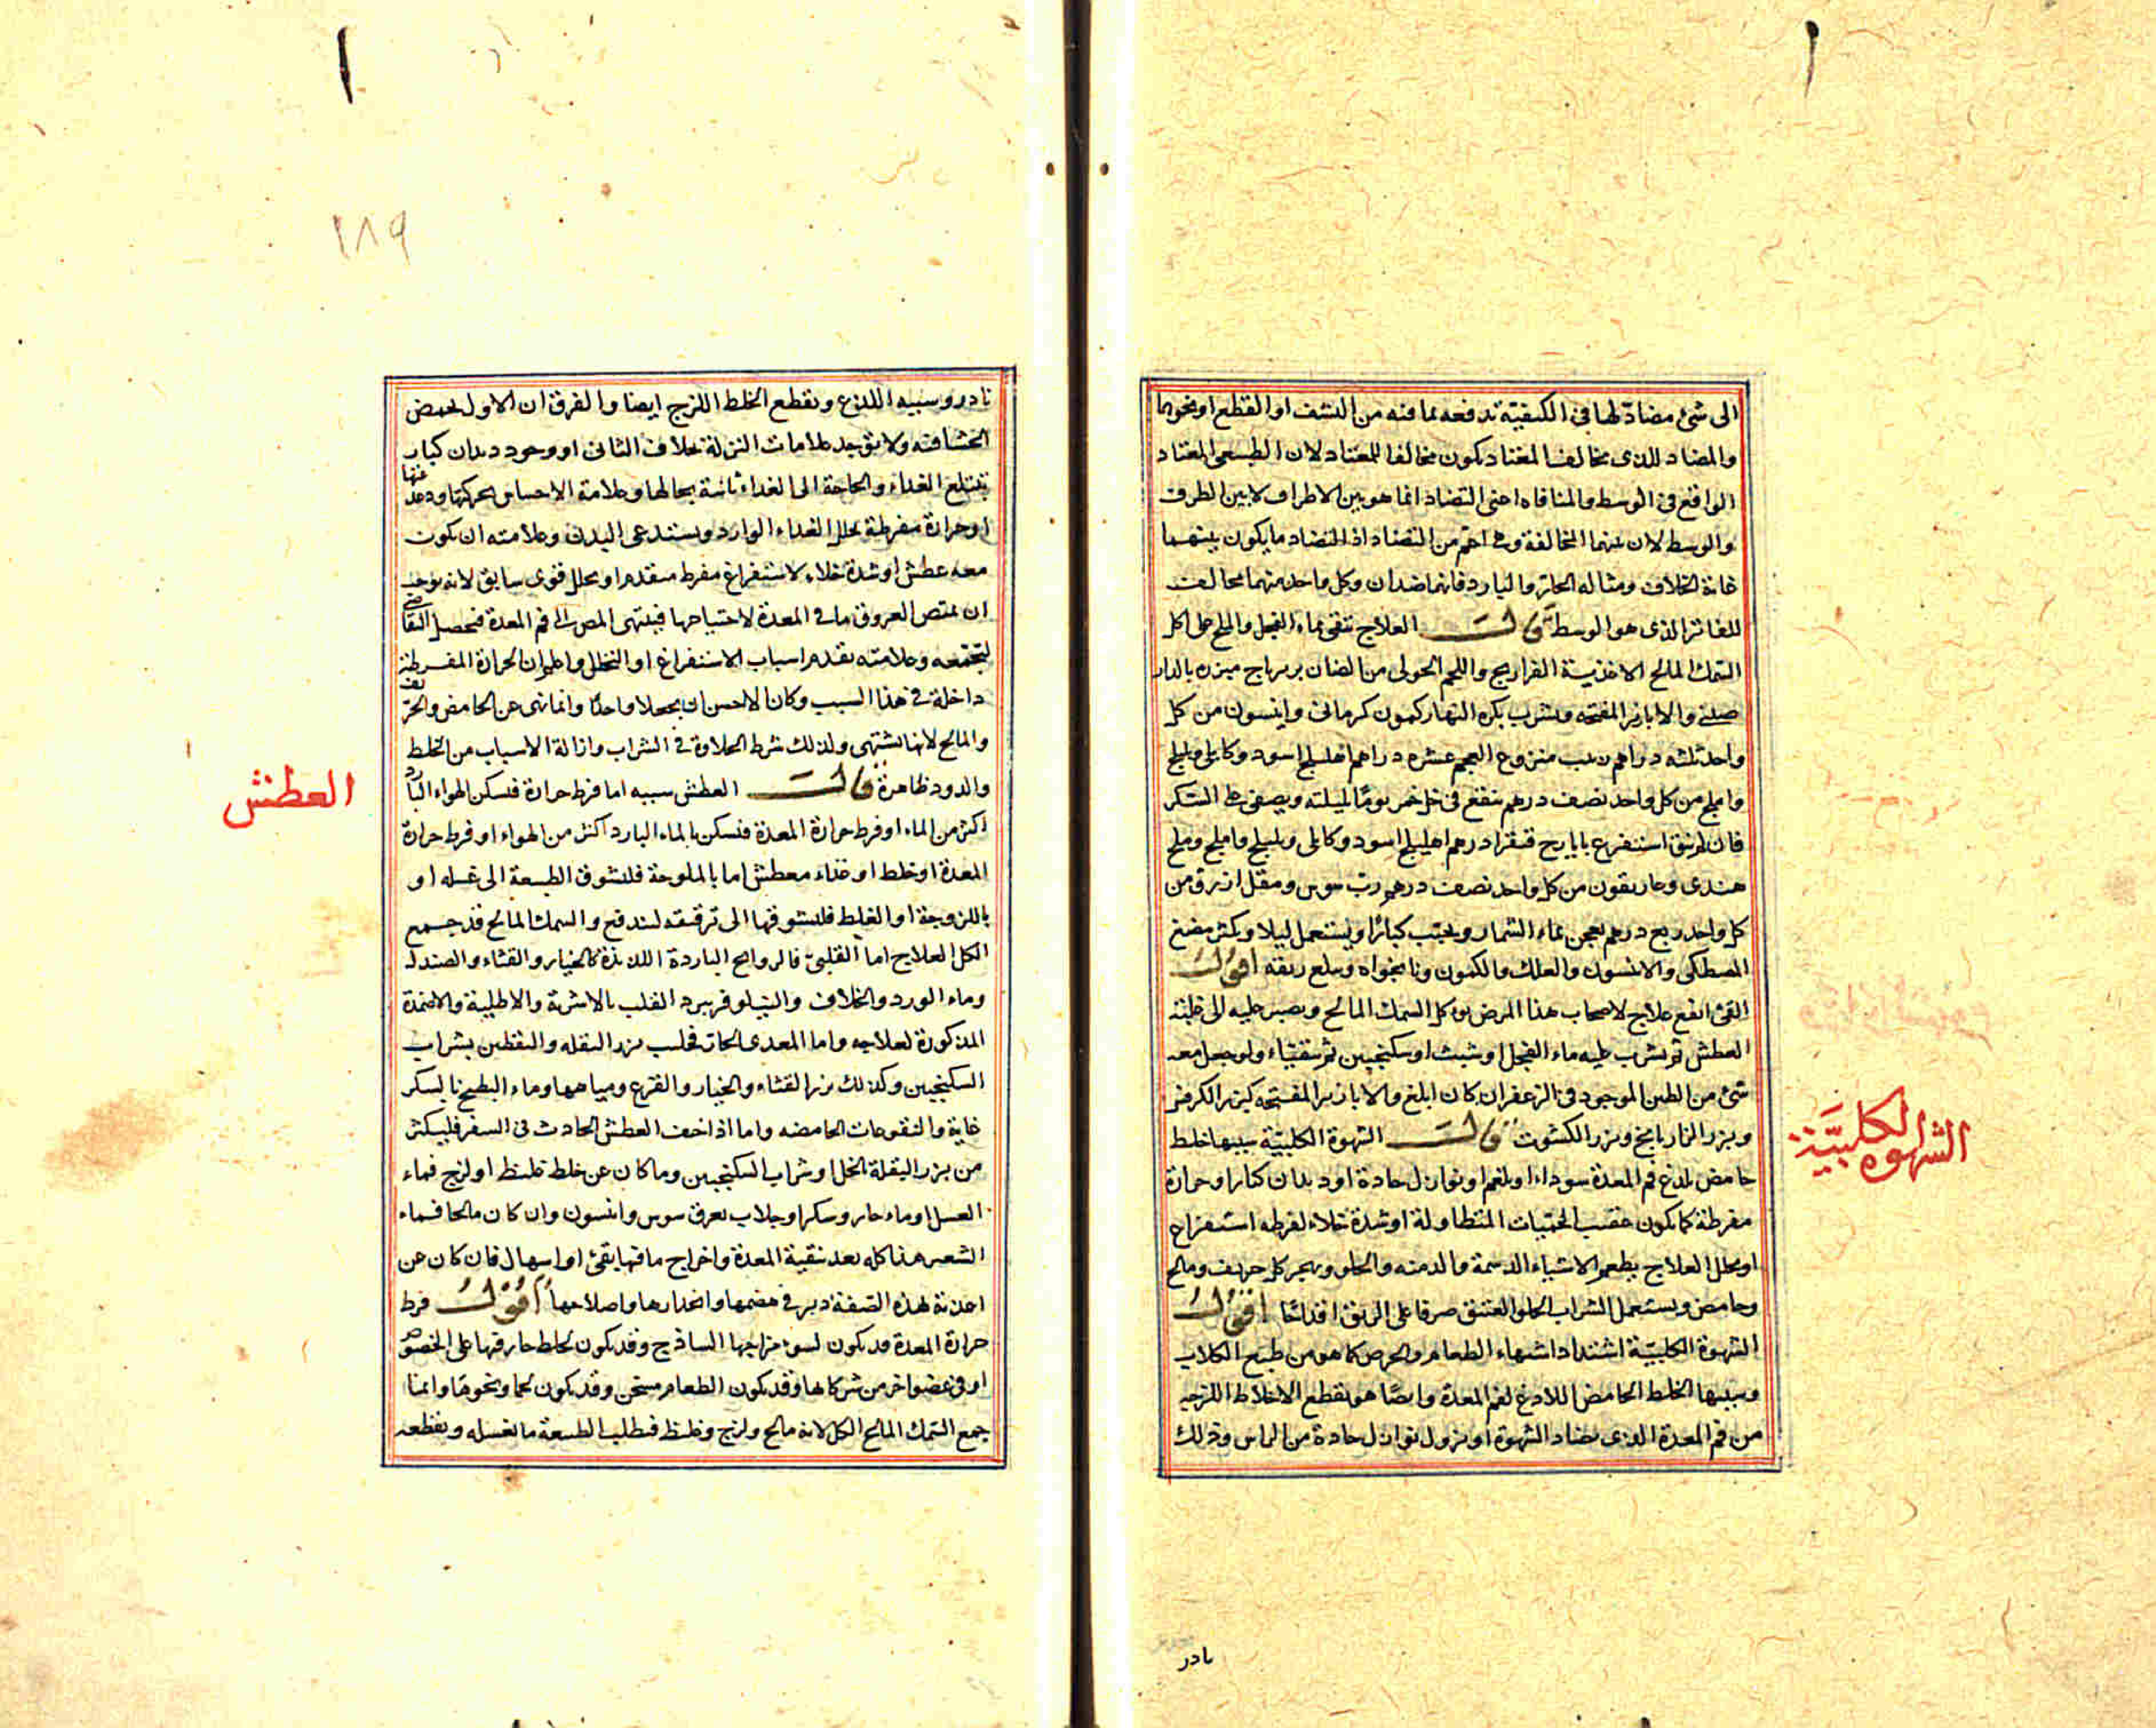 الى شئ مضاد لها فى الكيفية تدفعه بما فيه من النشف او القطع او نحوهما
والمضاد للذى مخالف المعتاد يكون مخالفا للمعتاد لان الطبيعى المعتاد
الواقع فى الوسط والمنافاة اعنى التضاد انما هو بين الاطراف لا بين الطرف
والوسط لان بينهما المخالفة وهى اعم من التضاد اذ التضاد ما يكون بينهما
غاية الخلاف ومثاله الحار والبارد فانهما ضدان وكل واحد منهما مخالف
للفاتر الذى هو الوسط قال العلاج تنقى بماء الفجل والملح على اكل
السمك المالح الاغذية الفراريج واللحم الحولى من الضان بربراج مبزره بالدار
صينى والابازير المفتحه ويشرب بكره النهار كمون كرمانى وانيسون من كل
واحد ثلثه دراهم زبيب منزوع العجم عشره دراهم اهليلج اسود وكابلى وبليلج
واملج من كل واحد نصف درهم ينقع فى خل خمر يوما بليلته ويصفى على السكر
فان لم ينق استفرغ بايارج فيقرا درهم اهليلج اسود وكابلى وبليلج واملج وملح
هندى وغاريقون من كل واحد نصف درهم رب سوس ومقل ازرق من
كل واحد ربع درهم يعجن بماء الشمار ويحبب كبارا ويستعمل ليلا ويكثر مضغ
المصطكى والانيسون والعلك والكمون ونانخواه ويبلع ريقه اقول
القئ انفع علاج لاصحاب هذا المرض يوكل السمك المالح ويصبر عليه الى غلبة
العطش ثم يشرب عليه ماء الفجل او شبث او سكنجبين ثم يتقيا ولو جعل معه
شئ من الطين الموجود فى الزعفران كان ابلغ والابازير المفتحه كبزر الكرفس
وبزر الرازيانج وبزر الكشوت قال الشهوة الكلبية سببها خلط
حامض يلدغ فم المعدة سوداء او بلغم او نوازل حادة او ديدان كبار او حرارة
مفرطة كما يكون عقيب الحميات المتطاولة او شدة خلاء لفرط استفراغ
او تحلل العلاج يطعم الاشياء الدسمة والدهنه والحلو ويهجر كل حريف ومالح
وحامض ويستعمل الشراب الحلو العتيق صرفا على الريق اقداحا اقول
الشهوة الكلبية اشتداد اشتهاء الطعام والحرص كما هو من طبع الكلاب
وسببها الخلط الحامض اللادغ لفم المعدة وايضا هو يقطع الاخلاط اللزجه
من فم المعدة الذى يضاد الشهوة او نزول نوازل حادة من الراس وذلك
الشهوه الكلبية
نادر
١٨٩
نادر وسببه اللذع وتقطع الخلط اللزج ايضا والفرق ان الاول يحمض
الجشا فيه ولا يوجد علامات النزلة بخلاف الثانى او وجود ديدان كبار
تبتلع الغذاء والحاجة الى الغذاء ثابتة بحالها وعلامة الاحساس بحركتها
او حرارة مفرطة تحلل الغذاء الوارد ويستدعى البدن وعلامته ان يكون
معه عطش او شدة خلاء لاستفراغ مفرط متقدم او تحلل قوى سابق لانه يوجب
ان تمتص العروق ما فى المعدة لاحتياجها فينتهى المص الى فم المعدة فيحصل التقاضى
وعلامته تقدم اسباب الاستفراغ او التحلل واعلم ان الحرارة المفرطة
داخلة فى هذا السبب وكان الاحسن ان يجعلا واحدا وانما نهى عن الحامض والحريف
والمالح لانها تشهى ولذلك شرط الحلاوة فى الشراب وازالة الاسباب من الخلط
والدود ظاهرة قال العطش سببه اما فرط حرارة فيسكن الهواء البارد
اكثر من الماء او فرط حرارة المعدة فيسكن بالماء البارد اكثر من الهواء او فرط حرارة
المعدة او خلط او غذاء معطش اما بالملوحة فلتشوق الطبيعة الى غسله او
باللزوجة او الغليظ فلتشوقها الى ترقيقه لتندفع والسمك المالح قد جمع
الكل العلاج اما القلبى فالروايح الباردة اللذيذة كالخيار والقثاء والصندل
وماء الورد والخلاف والنيلوفر يبرد القلب بالاشربة والاطلية والاضمدة
المذكورة لعلاجه واما المعدى الحار فحليب بزر البقله واليقطين بشراب
السكنجبين وكذلك بزر القثاء والخيار والقرع ومياهها وماء البطيخ بالسكر
غاية والنقوعات الحامضه واما اذا خيف العطش الحادث فى السفر فليكثر
من بزر البقلة الخل او شراب السكنجبين وما كان عن خلط غليظ او لزج فماء
العسل او ماء حار وسكر او جلاب بعرق سوس وانيسون وان كان مالحا فماء
الشعير هذا كله بعد تنقية المعدة واخراج ما فيها بقئ او اسهال فان كان عن
اغذية بهذه الصفة دبر فى هضمها وانحدارها واصلاحها اقول فرط
حرارة المعدة قد يكون لسوء مزاجها الساذج وقد يكون لخلط حار فيها على الخصوص
او فى عضو اخر من شركائها وقد يكون الطعام مسخن وقد يكون لحما ونحوها وانما
جمع السمك المالح الكل لانه مالح ولزج وغليظ فتطلب الطبيعة ما تغسله وتقطعه
العطش